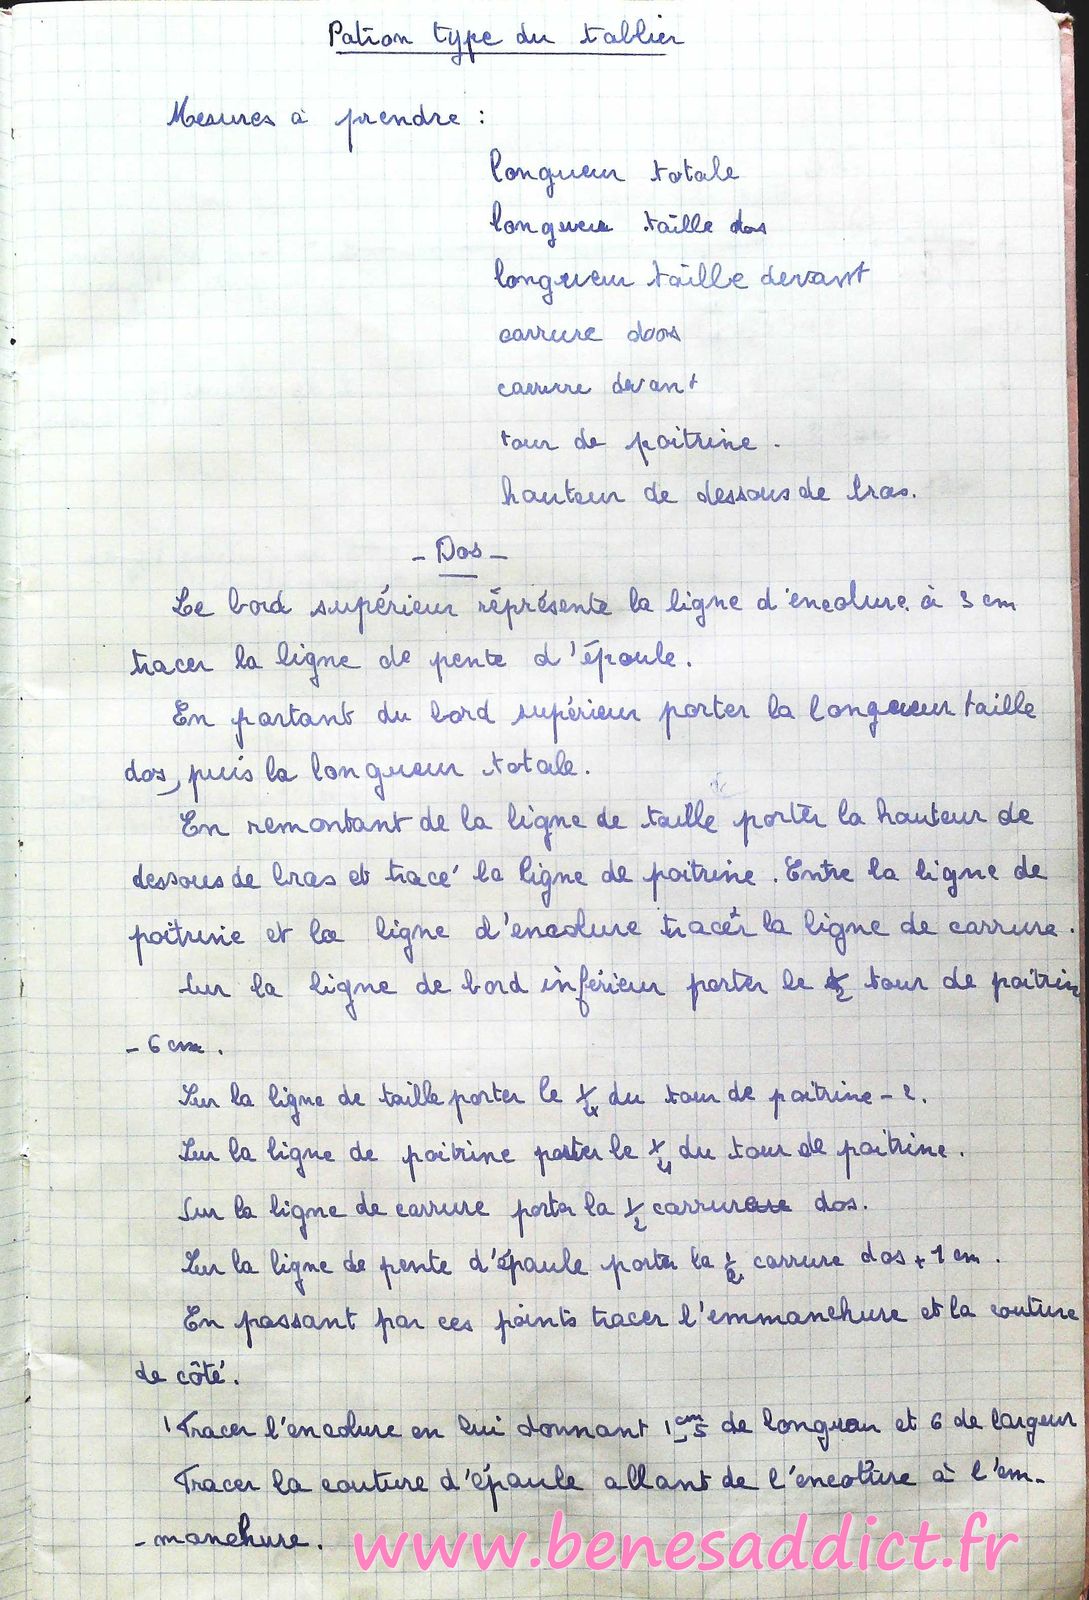 Patron type du tablier
Mesures à prendre :
longueur totale
longueur taille dos
longueur taille devant
carrure dos
carrure devant
tour de poitrine .
hauteur de dessous de bras.
- Dos -
Le bord supérieur réprésente la ligne d'encolure. à 3 cm
tracer la ligne de pente d'épaule.
En partant du bord supérieur porter la longueur taille
dos, puis la longueur totale.
En remontant de la ligne de taille porter la hauteur de
dessous de bras et tracé la ligne de poitrine. Entre la ligne de
poitrine et la ligne d'encolure tracer la ligne de carrure.
Sur la ligne de bord inférieur porter le 1/2 tour de poitrine
- 6 cm.
Sur la ligne de taille porter le 1/4 du tour de poitrine - 2.
Sur la ligne de poitrine porter le 1/4 du tour de poitrine.
Sur la ligne de carrure porter la 1/2 carrure dos.
Sur la ligne de pente d'épaule porter la 1/2 carrure dos + 1 cm.
En passant par ces points tracer l'emmanchure et la couture
de côté.
Tracer l'encolure en lui donnant 1 cm, 5 de longueur et 6 de largeur
Tracer la couture d'épaule allant de l'encolure à l'em-
-manchure.
www.benesaddict.fr